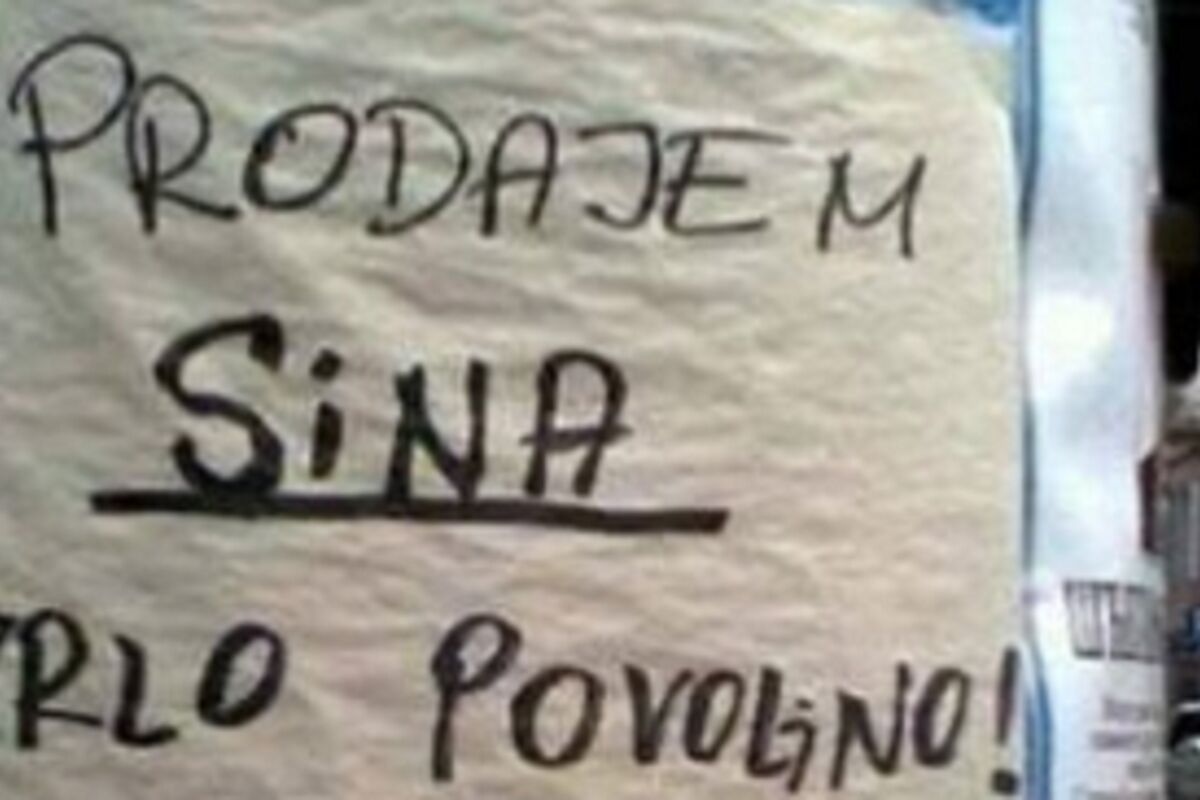 PRODAJEM
SiNA
VRLO POVOLjNO!